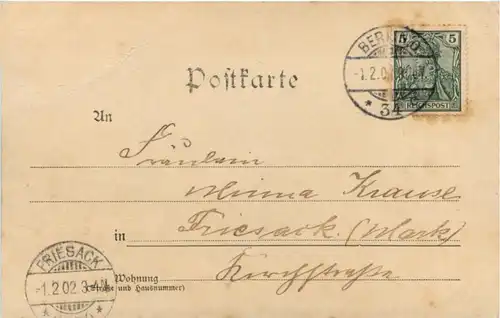 BERLIN.O.
5 5
-1.2.0
* 34
REICHSPOST
Postkarte
An
Fräulein
Minna Krause
in Friesack. (Mark)
Wohnung
(Straße und Hausnummer)
Kirchstraße
FRIESACK
-1.2 02.3-4N